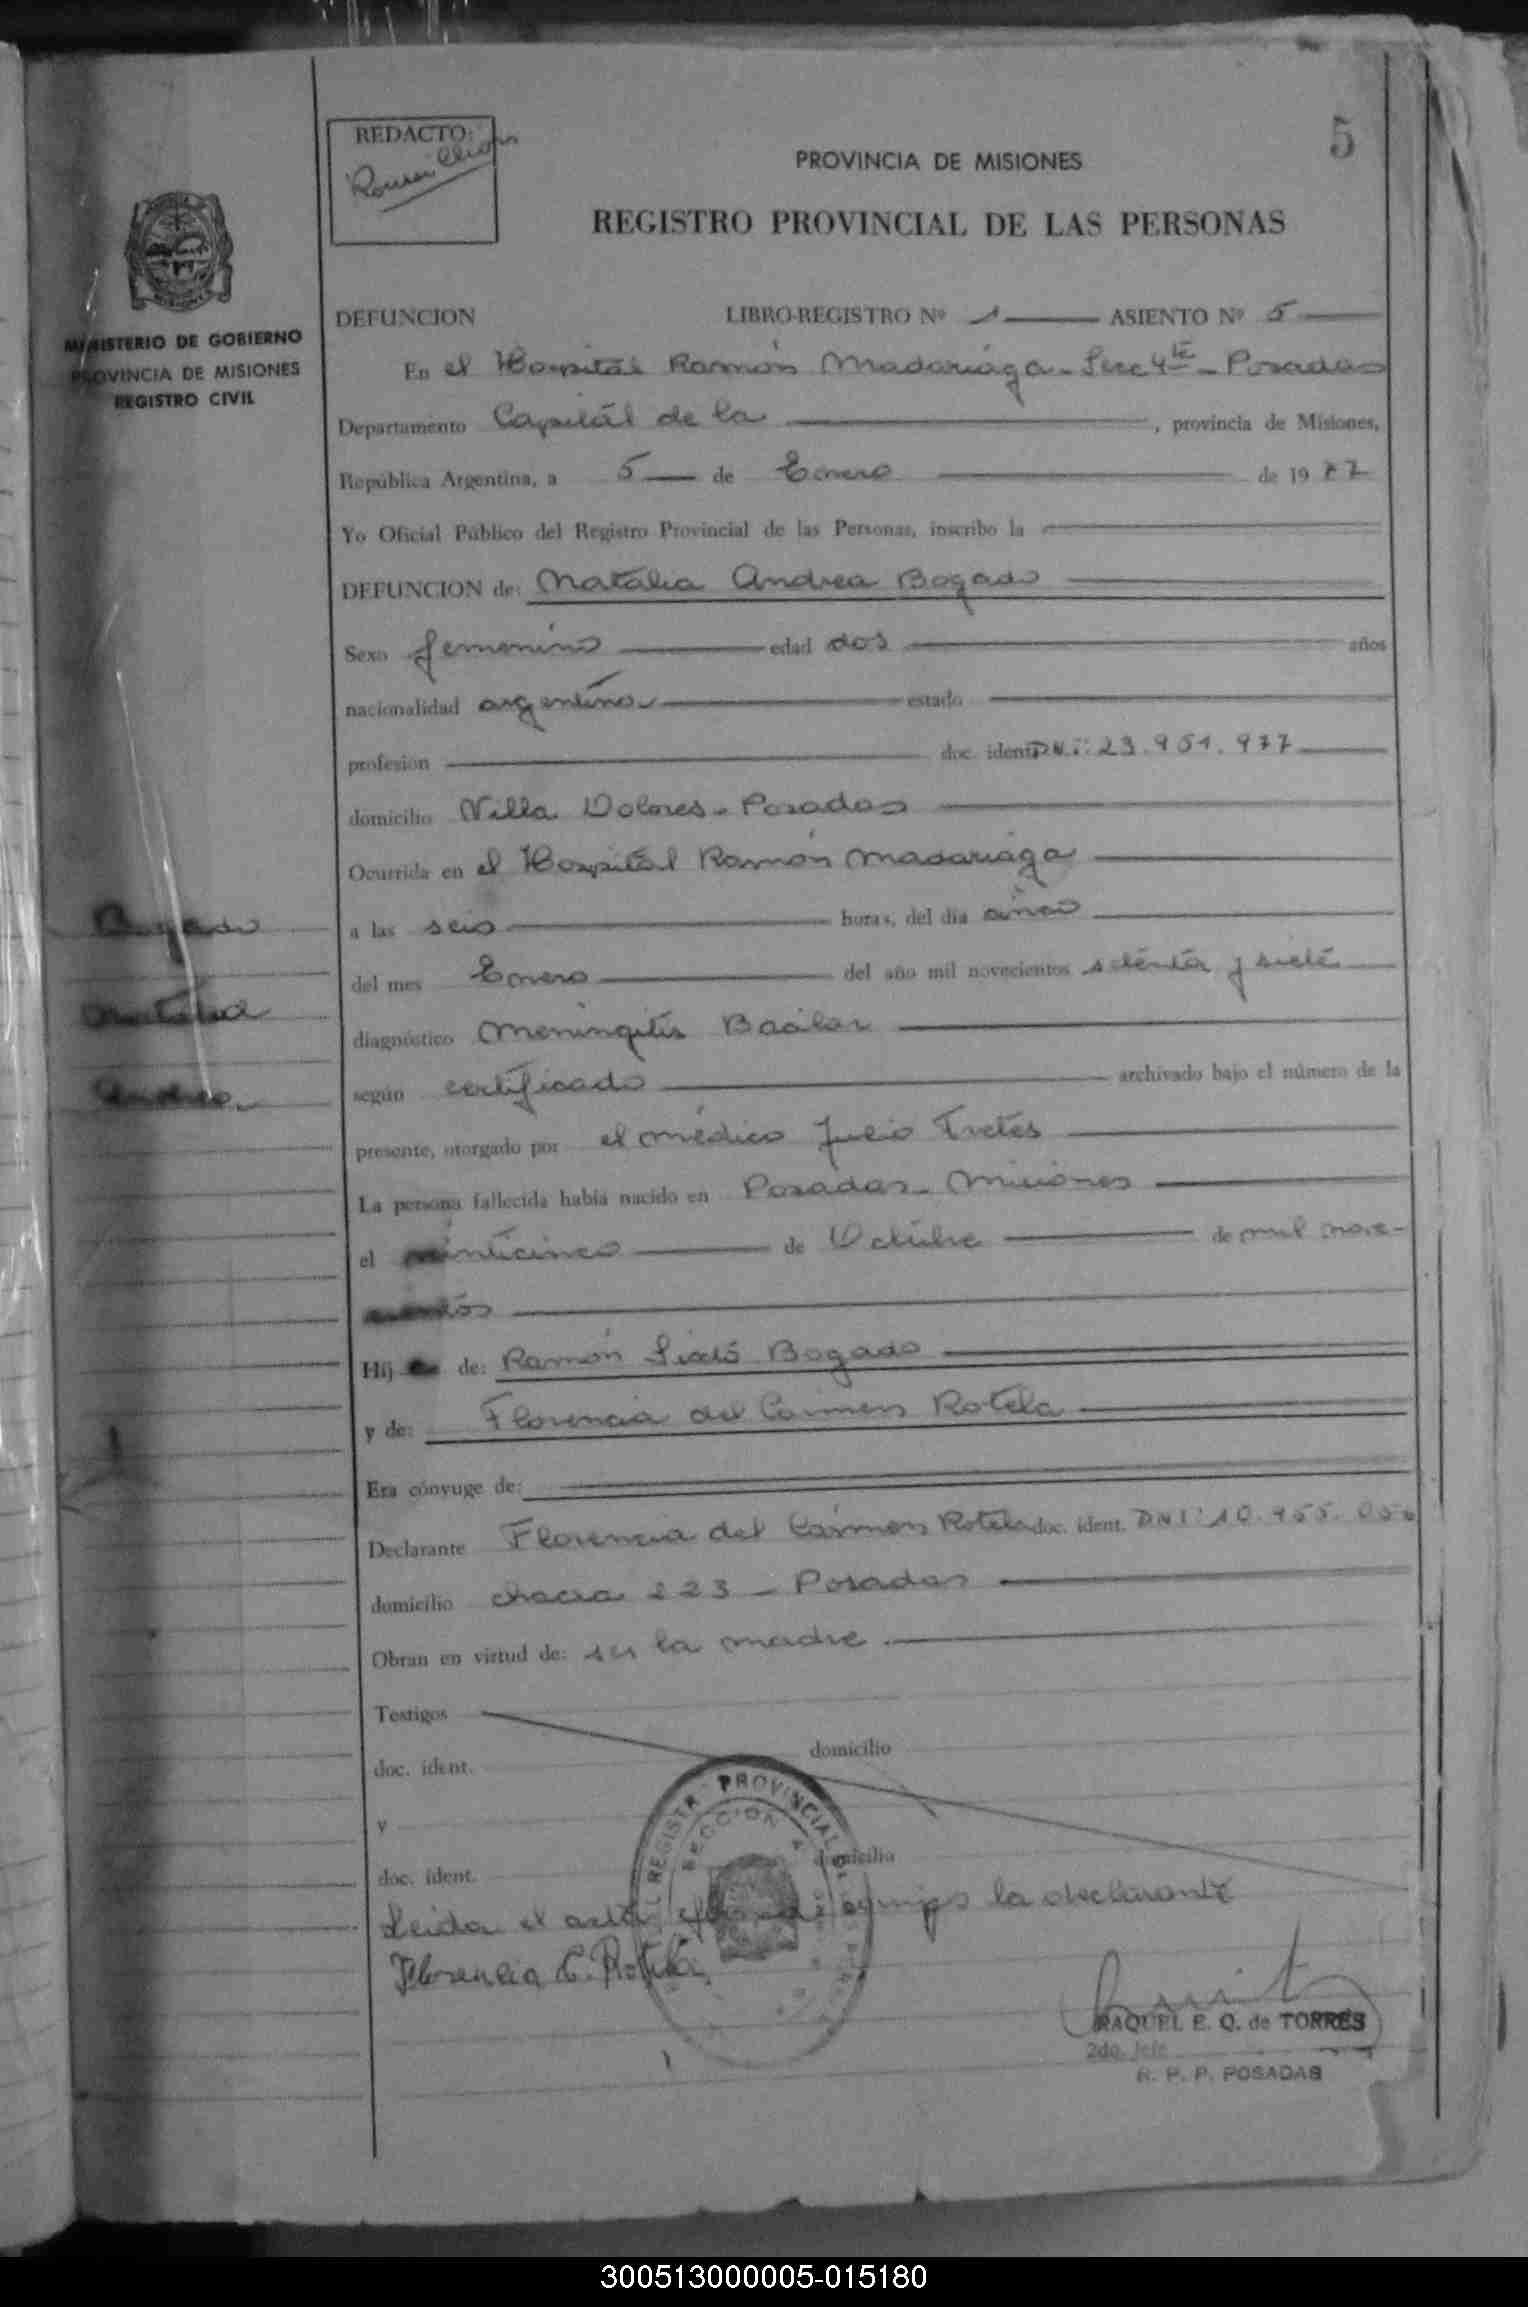 REDACTO:
5
PROVINCIA DE MISIONES
REGISTRO PROVINCIAL DE LAS PERSONAS
MINISTERIO DE GOBIERNO
PROVINCIA DE MISIONES
REGISTRO CIVIL
DEFUNCION LIBRO-REGISTRO Nº 1 ASIENTO Nº 5
En el Hospital Ramón Madariaga - Secc 4ta - Posadas
Departamento Capital de la , provincia de Misiones,
República Argentina, a 5 de Enero de 1977
Yo Oficial Público del Registro Provincial de las Personas, inscribo la
DEFUNCION de: Natalia Andrea Bogado
Sexo femenino edad dos años
nacionalidad argentina estado
profesion doc. ident. DNI: 23.951.977
domicilio Villa Dolores - Posadas
Ocurrida en el Hospital Ramón Madariaga
Bogado
a las seis horas, del dia cinco
del mes Enero del año mil novecientos setenta y siete
Natalia
diagnóstico Meningitis Bacilar
Andrea
según certificado archivado bajo el número de la
presente, otorgado por el médico Julio Fretes
La persona fallecida había nacido en Posadas - Misiones
el veinticinco de Octubre de mil nove-
cientos
Hij de: Ramón Sixto Bogado
y de: Florencia del Carmen Rotela
Era cónyuge de:
Declarante Florencia del Carmen Rotela doc. ident. DNI: 10.955.056
domicilio chacra 223 - Posadas
Obran en virtud de: ser la madre
Testigos
doc. ident. domicilio
y
doc. ident. domicilio
REGISTRO PROVINCIAL DE
SECCION 4
Leida el acta la declarante
Florencia C. Rotela
RAQUEL E. Q. de TORRES
2do. Jefe
R. P. P. POSADAS
300513000005-015180